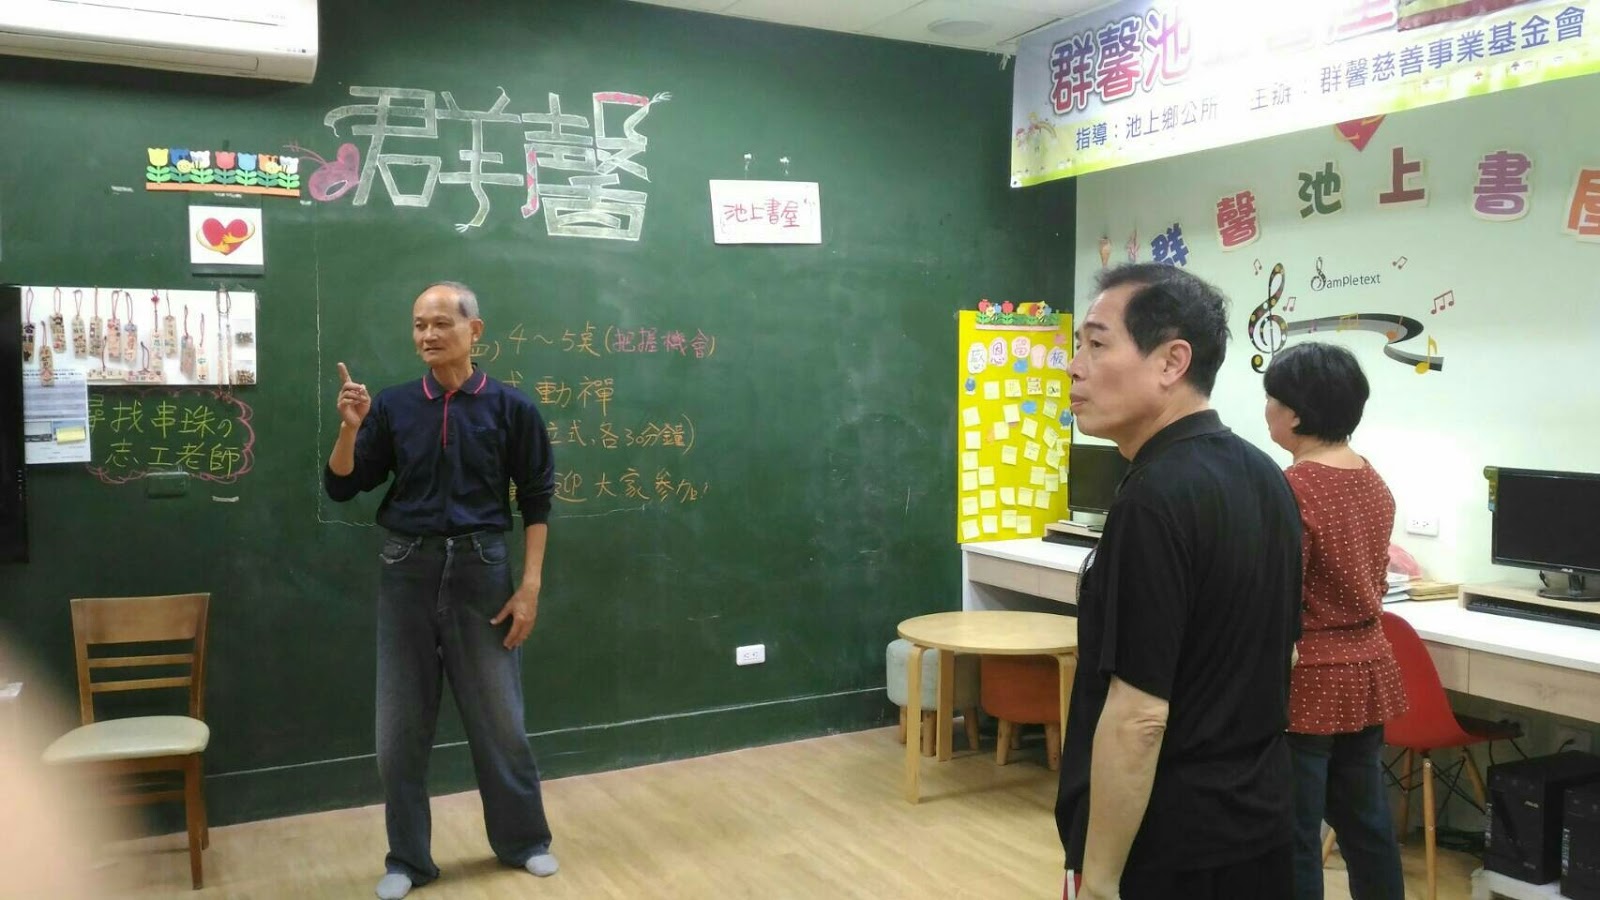 群馨
池上書屋
四) 4～5桌(把握機會)
式動禪
立式、各30分鐘)
迎大家參加!
尋找串珠の
志工老師
群馨池上書屋
指導：池上鄉公所 主辦：群馨慈善事業基金會
群馨池上書屋
Sample text
感恩留言板